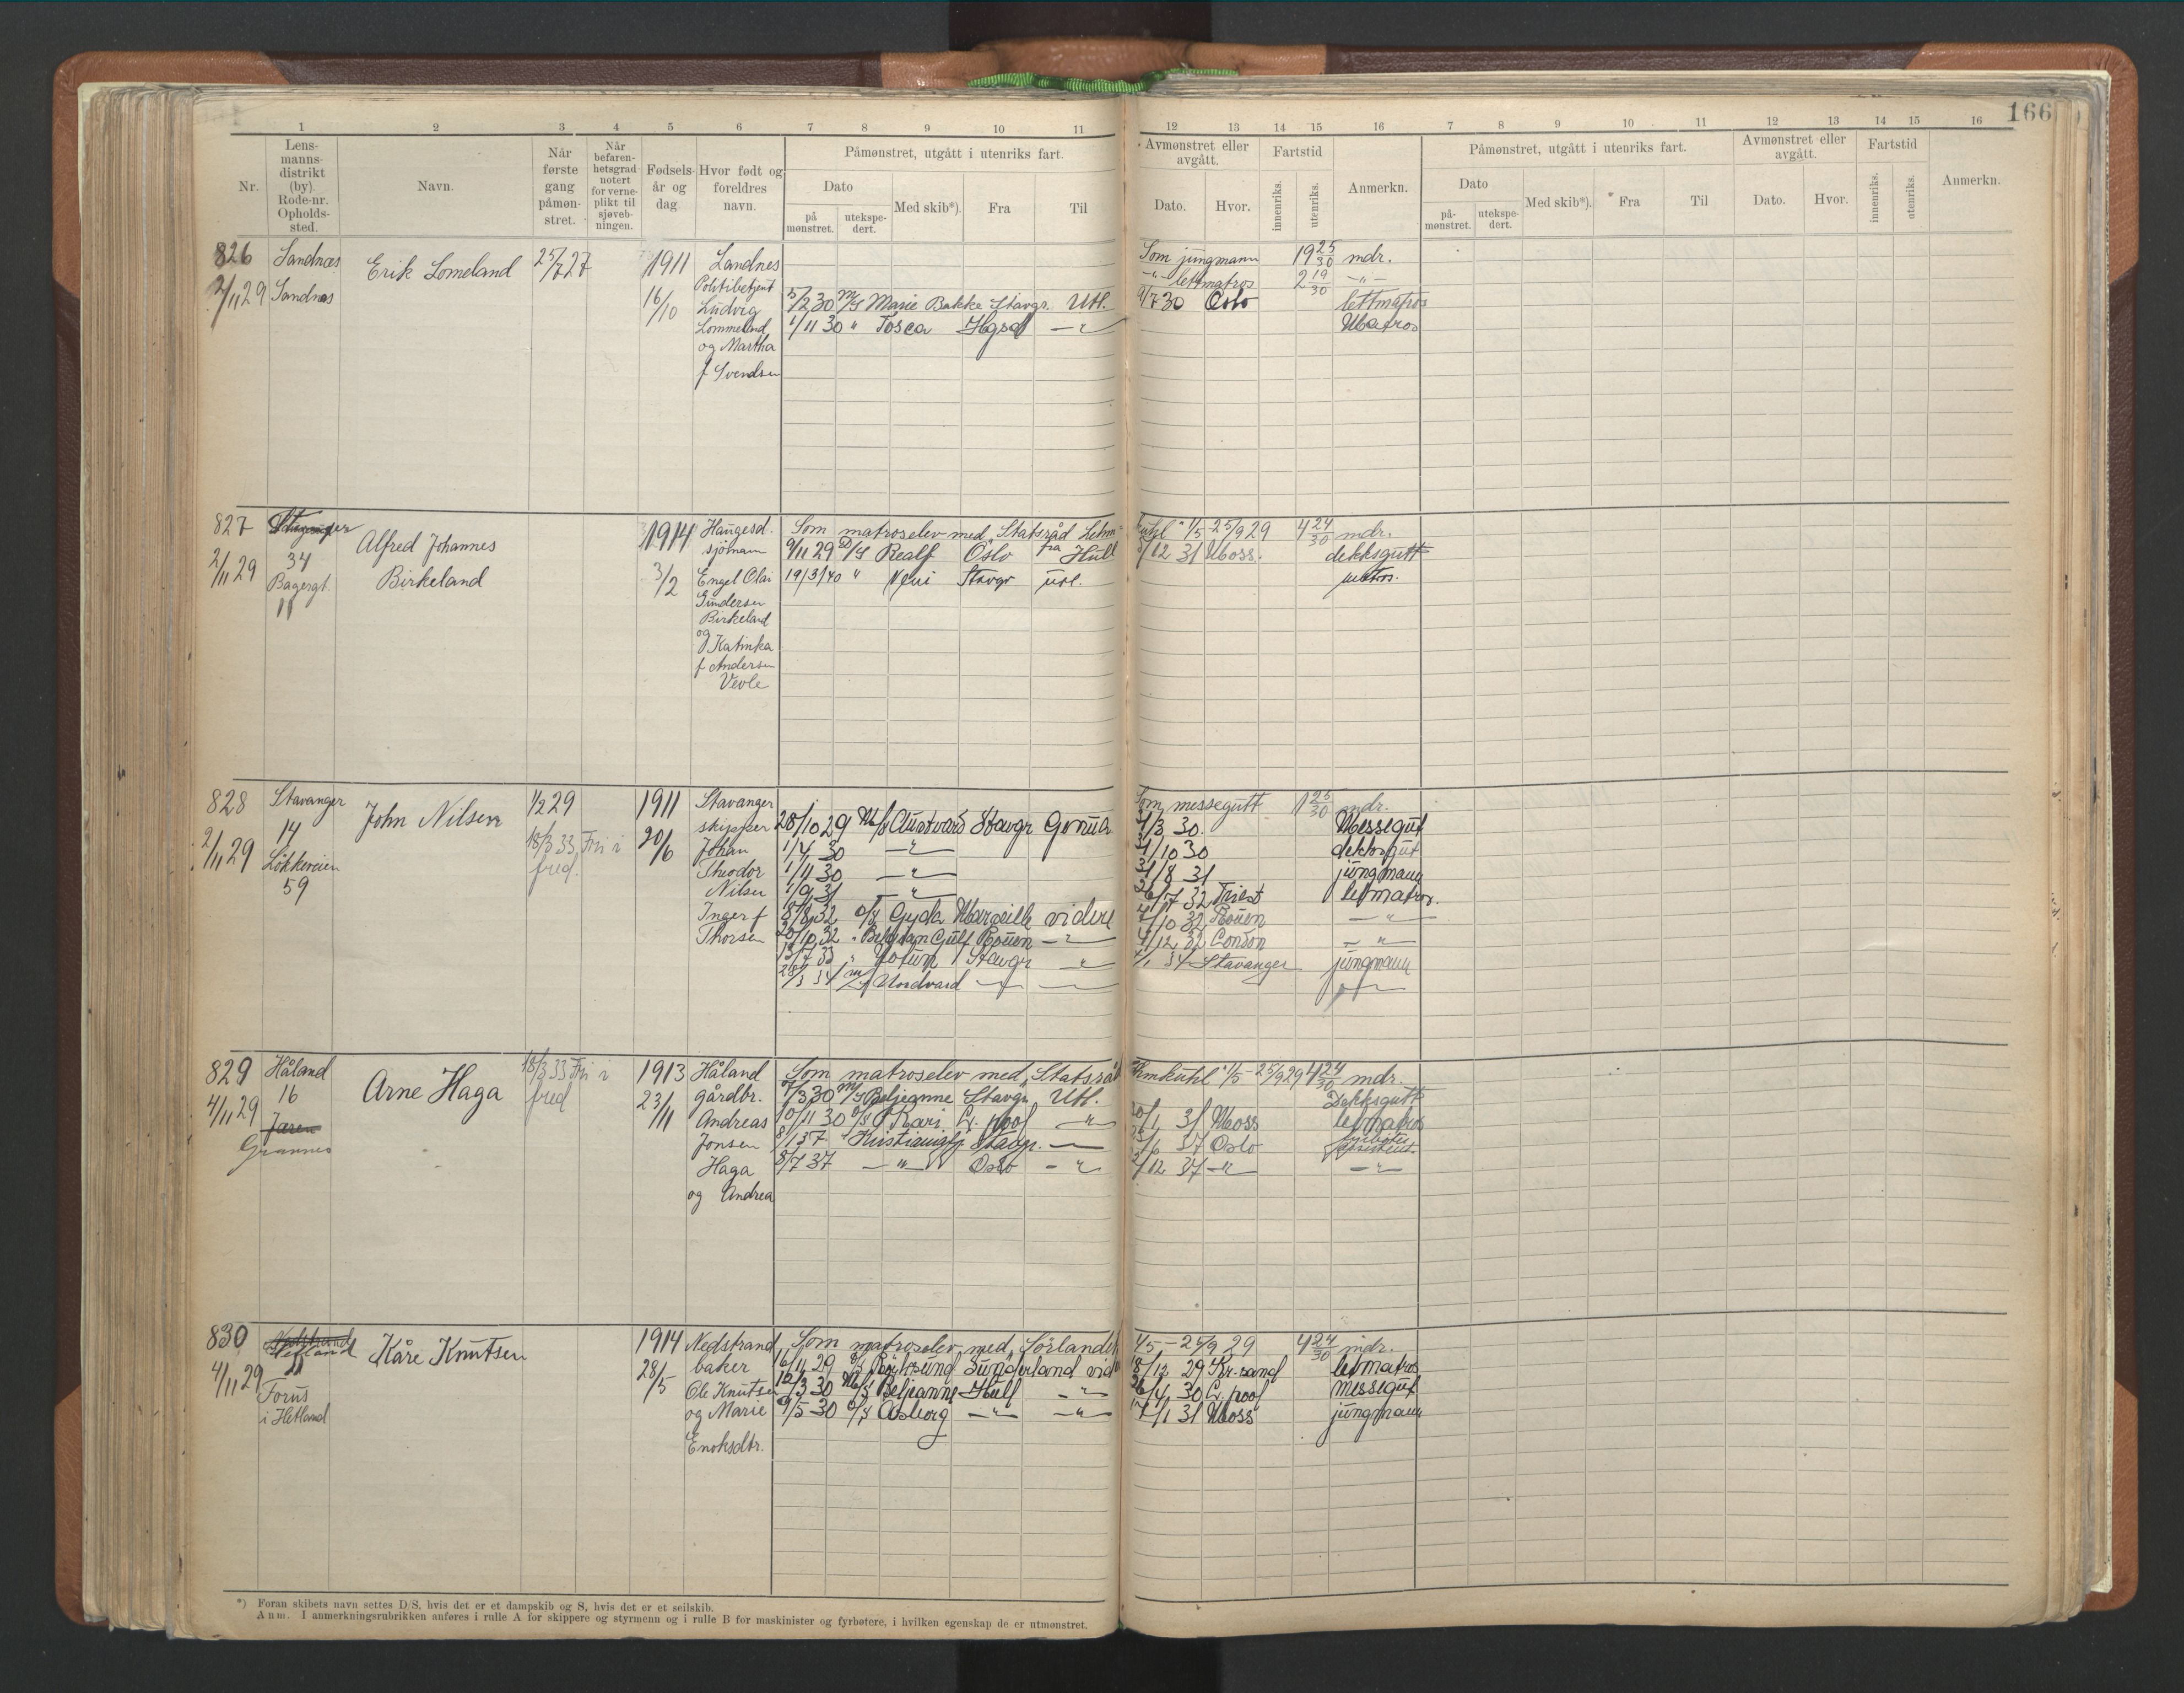 166
1 2 3 4 5 6 7 8 9 10 11
12 13 14 15 16 7 8 9 10 11 12 13 14 15 16
Nr.
Lens-
manns-
distrikt
(by)
Rode-nr.
Opholds-
sted.
Navn.
Når
første
gang
påmøn-
stret.
Når
befaren-
hetsgrad
notert
for verne-
plikt til
sjøveb-
ningen.
Fødsels-
år og
dag
Hvor født og
foreldres
navn.
Påmønstret, utgått i utenriks fart.
Dato
på
mønstret.
utekspe-
dert.
Med skib*).
Fra
Til
Avmønstret eller
avgått.
Dato.
Hvor.
Fartstid
innenriks.
utenriks.
Anmerkn.
Påmønstret, utgått i utenriks fart.
Dato
på-
mønstret.
utekspe-
dert.
Med skib*).
Fra
Til
Avmønstret eller
avgått.
Dato.
Hvor.
Fartstid
innenriks.
utenriks.
Anmerkn.
826
2/11 29
Sandnæs
Sandnæs
Erik Lomeland
25/7 27
1911
16/10
Sandnes
Politibetjent
Ludvig
Lommeland
og Martha
f Svendsen
5/2 30 M/S Marie Bakke Stavgr. Utl.
1/11 30 " Tosca Hgsd — " —
Som jungmann 19 25/30 mdr.
— " — lettmatros 2 19/30 — " —
9/7 30 Oslo lettmatros
Matros
827
2/11 29
Stavanger
34
Bagergt.
11
Alfred Johannes
Birkeland
1914
3/2
Haugesd.
sjømann
Engel Olai
Gundersen
Birkeland
og Katinka
f Andersen
Vevle
Som matroselev med "Statsråd Lehm=
9/11 29 D/S Realf Oslo fra Hull
19/3/40 " Veni Stavgr utl.
kuhl" 1/5-25/9 29 4 24/30 mdr.
/12 31 Moss. dekksgutt
matros.
828
2/11 29
Stavanger
14
Løkkeveien
59
John Nilsen
1/2 29
18/3 33 Fri i
fred.
1911
20/6
Stavanger
skipper
Johan
Theodor
Nilsen
Inger f
Thorsen
28/10 29 M/S Austvard Stavgr Genua
1/4 30 — " —
1/11 30 — " —
1/9 31 — " —
8/8 32 D/S Gyda Marseille videre
20/10 32 " Belgian Gulf Rouen — " —
13/7 33 " Jotun Stavgr — " —
28/3 34 M/S Nordvard — " —
Som messegutt 1 25/30 mdr.
31/3 30. Messegut
31/10 30 dekksgut
31/8 31 jungmann
26/7 32 Triest letmatros.
/10 32 Rouen — " —
/12 32 London — " —
/1 34 Stavanger jungmann
— " —
829
4/11 29
Håland
16
Jæren
Grannes
Arne Haga
18/3 33 Fri i
fred
1913
23/11
Håland
gårdbr.
Andreas
Jonsen
Haga
og Andrea
Som matroselev med "Statsråd
7/3 30 M/S Beljeanne Stavgr Utl.
10/11 30 D/S Kari L. pool — " —
8/1 37 " Kristianiafj Stavgr. —
8/7 37 — " — Oslo — " —
Lehmkuhl" 1/5 - 25/9 29 4 24/30 mdr.
Dekksgutt
20/1 31 Moss letmatros
25/6 37 Oslo fyrbøter assistent.
2/12 37 — " — — " —
830
4/11 29
Nedstrand
Hetland
11
Forus
i Hetland
Kåre Knutsen
1914
28/5
Nedstrand
baker
Ole Knutsen
og Marie
Enoksdtr.
Som matroselev med "Sørlandet
16/11 29 Sunderland vid
12/3 30 M/S Beljeanne Hull — " —
9/5 30 D/S Asborg — " — — " —
1/5 — 25/9 29 4 24/30 mdr.
18/12 29 Kr.sand letmatros
26/4 30 L. pool messegut
17/1 31 Moss jungmann
*) Foran skibets navn settes D/S, hvis det er et dampskib og S, hvis det er et seilskib.
Anm. I anmerkningsrubrikken anføres i rulle A for skippere og styrmenn og i rulle B for maskinister og fyrbøtere, i hvilken egenskap de er utmønstret.